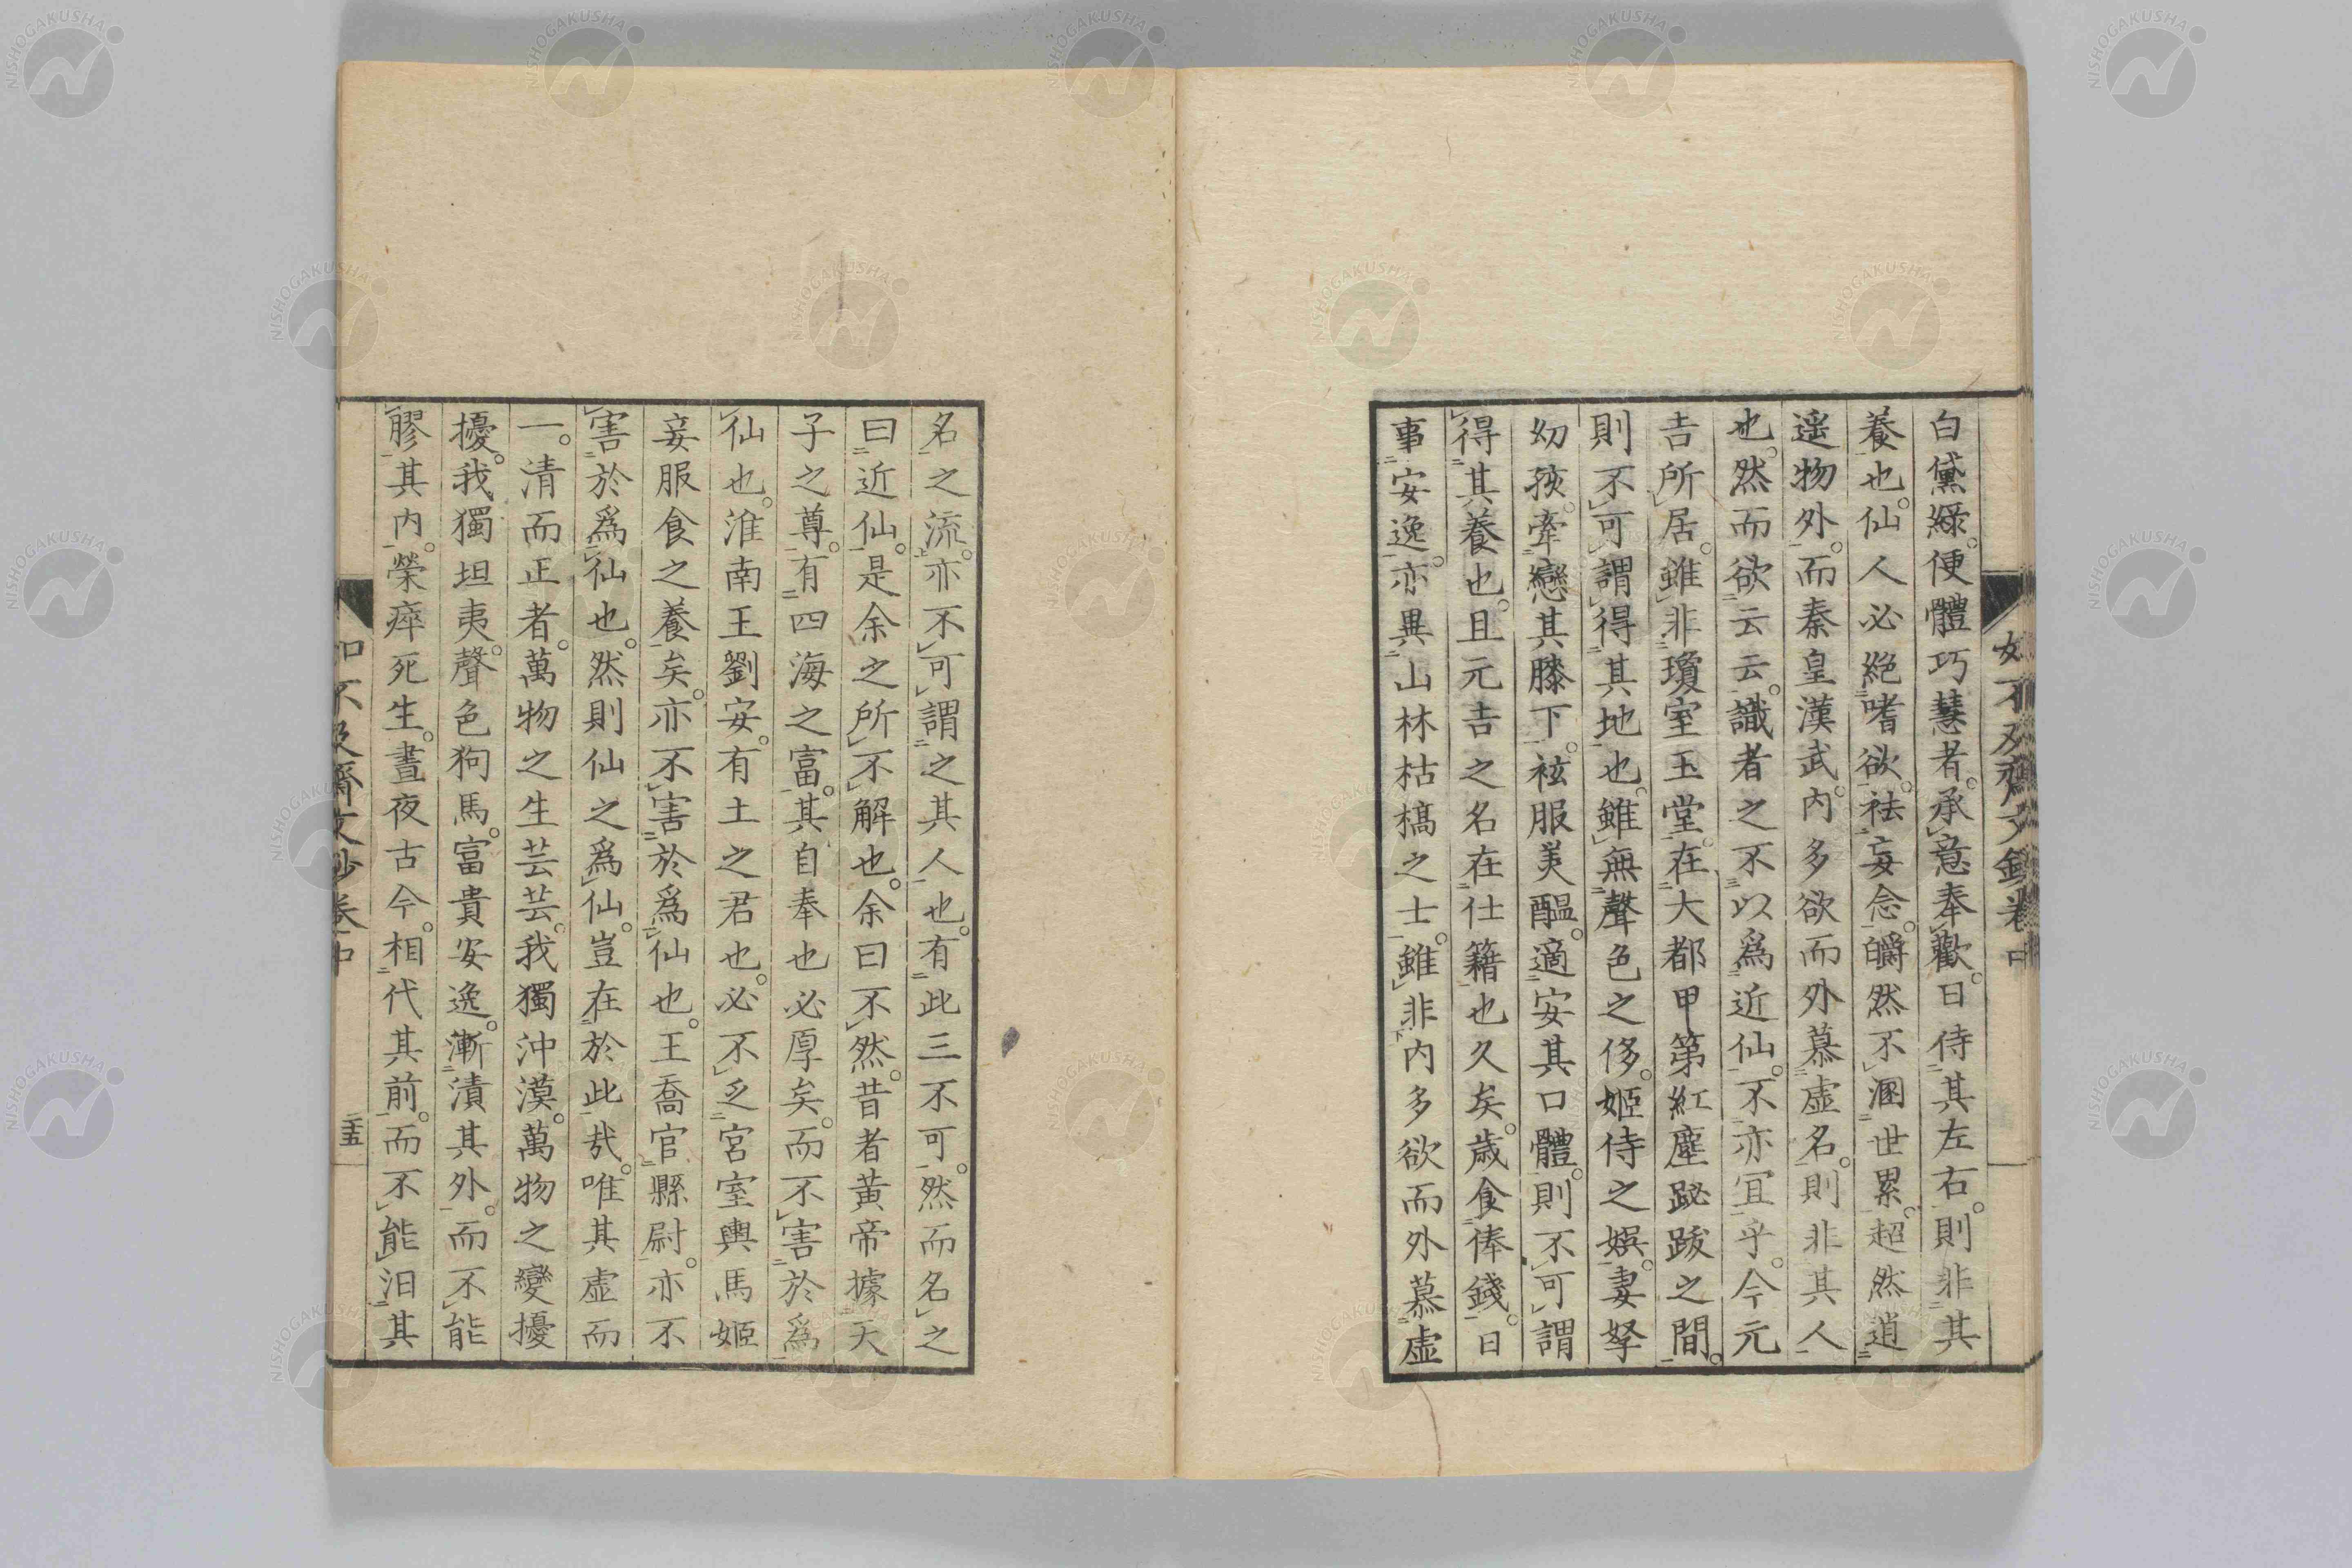 白黛緑。便體巧慧者。承意奉歡。日侍其左右。則非其
養也。仙人必絶嗜欲。祛妄念。皭然不溷世累。超然逍
遥物外。而秦皇漢武。内多欲而外慕虚名。則非其人
也。然而欲云云。識者之不以爲近仙。不亦宜乎。今元
吉所居。雖非瓊室玉堂。在大都甲第紅塵跋之間。
則不可謂得其地也。雖無聲色之侈。姬侍之娯。妻孥
幼孩。牽戀其膝下。袨服美醞。適安其口體。則不可謂
得其養也。且元吉之名在仕籍也久矣。歳食俸錢。日
事安逸。亦異山林枯槁之士。雖非内多欲而外慕虚
名之流。亦不可謂之其人也。有此三不可。然而名之
曰近仙。是余之所不解也。余曰不然。昔者黃帝據天
子之尊。有四海之富。其自奉也必厚矣。而不害於爲
仙也。淮南王劉安。有土之君也。必不乏宮室輿馬姬
妾服食之養矣。亦不害於爲仙也。王喬官縣尉。亦不
害於爲仙也。然則仙之爲仙。豈在於此哉。唯其虚而
一。清而正者。萬物之生芸芸。我獨沖漠。萬物之變擾
擾。我獨坦夷。聲色狗馬。富貴安逸。漸漬其外。而不能
膠其内。榮瘁死生。晝夜古今。相代其前。而不能汨其
如不及齋文鈔卷中
二十五